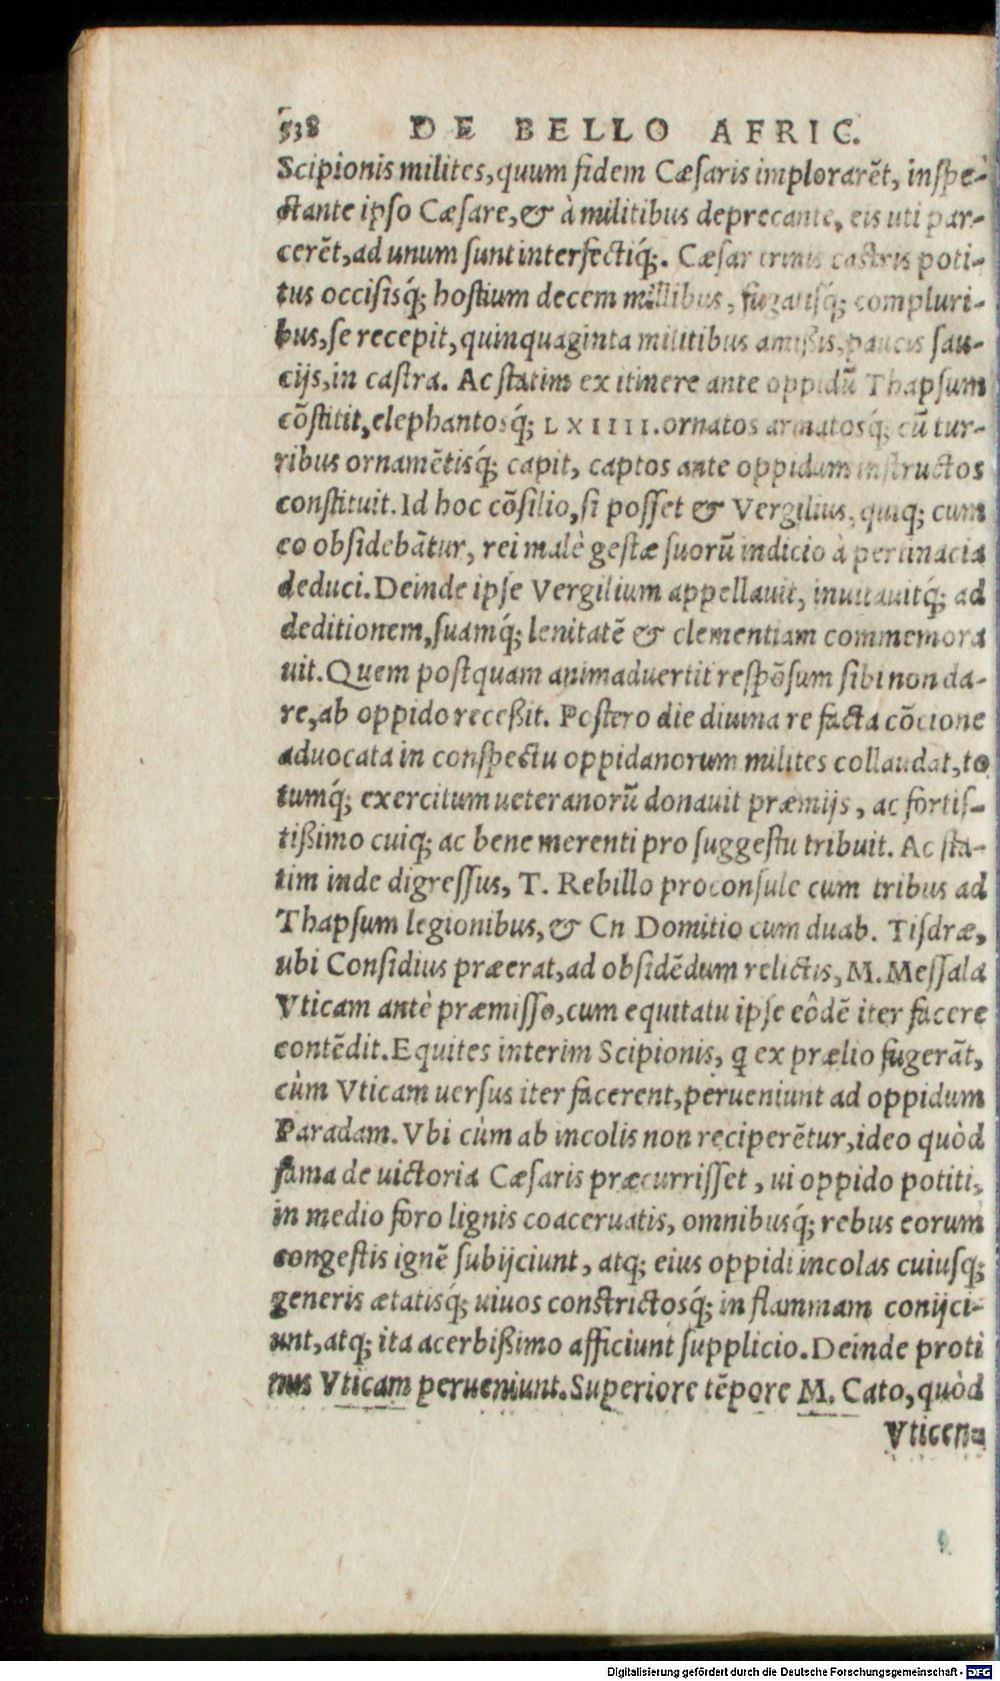 538 DE BELLO AFRIC.
Scipionis milites, quum fidem Cæsaris implorarẽt, inspe-
ctante ipso Cæsare, & à militibus deprecante, eis uti par-
cerẽt, ad unum sunt interfectiq́;. Cæsar trinis castris poti-
tus occisisq́; hostium decem millibus, fugatisq́; compluri-
bus, se recepit, quinquaginta militibus amißis, paucis sau-
cijs, in castra. Ac statim ex itinere ante oppidũ Thapsum
cõstitit, elephantosq́; LXIIII. ornatos armatosq́; cũ tur-
ribus ornamẽtisq́; capit, captos ante oppidum instructos
constituit. Id hoc cõsilio, si posset & Vergilius, quiq; cum
eo obsidebãtur, rei malè gestæ suorũ indicio à pertinacia
deduci. Deinde ipse Vergilium appellauit, inuitauitq́; ad
deditionem, suamq́; lenitatẽ & clementiam commemora
uit. Quem postquam animaduertit respõsum sibi non da-
re, ab oppido receßit. Postero die diuina re facta cõcione
aduocata in conspectu oppidanorum milites collaudat, to
tumq́; exercitum ueteranorũ donauit præmijs, ac fortis-
tißimo cuiq; ac bene merenti pro suggestu tribuit. Ac sta-
tim inde digressus, T. Rebillo proconsule cum tribus ad
Thapsum legionibus, & Cn Domitio cum duab. Tisdræ,
ubi Considius præerat, ad obsidẽdum relictis, M. Messala
Vticam antè præmisso, cum equitatu ipse eôdẽ iter facere
contẽdit. Equites interim Scipionis, q ex prælio fugerãt,
cùm Vticam uersus iter facerent, perueniunt ad oppidum
Paradam. Vbi cùm ab incolis non reciperẽtur, ideo quòd
fama de uictoria Cæsaris præcurrisset, ui oppido potiti,
in medio foro lignis coaceruatis, omnibusq́; rebus eorum
congestis ignẽ subijciunt, atq; eius oppidi incolas cuiusq;
generis ætatisq́; uiuos constrictosq́; in flammam conijci-
unt, atq; ita acerbißimo afficiunt supplicio. Deinde proti
nus Vticam perueniunt. Superiore tẽpore M. Cato, quòd
Vticen-
Digitalisierung gefördert durch die Deutsche Forschungsgemeinschaft - DFG